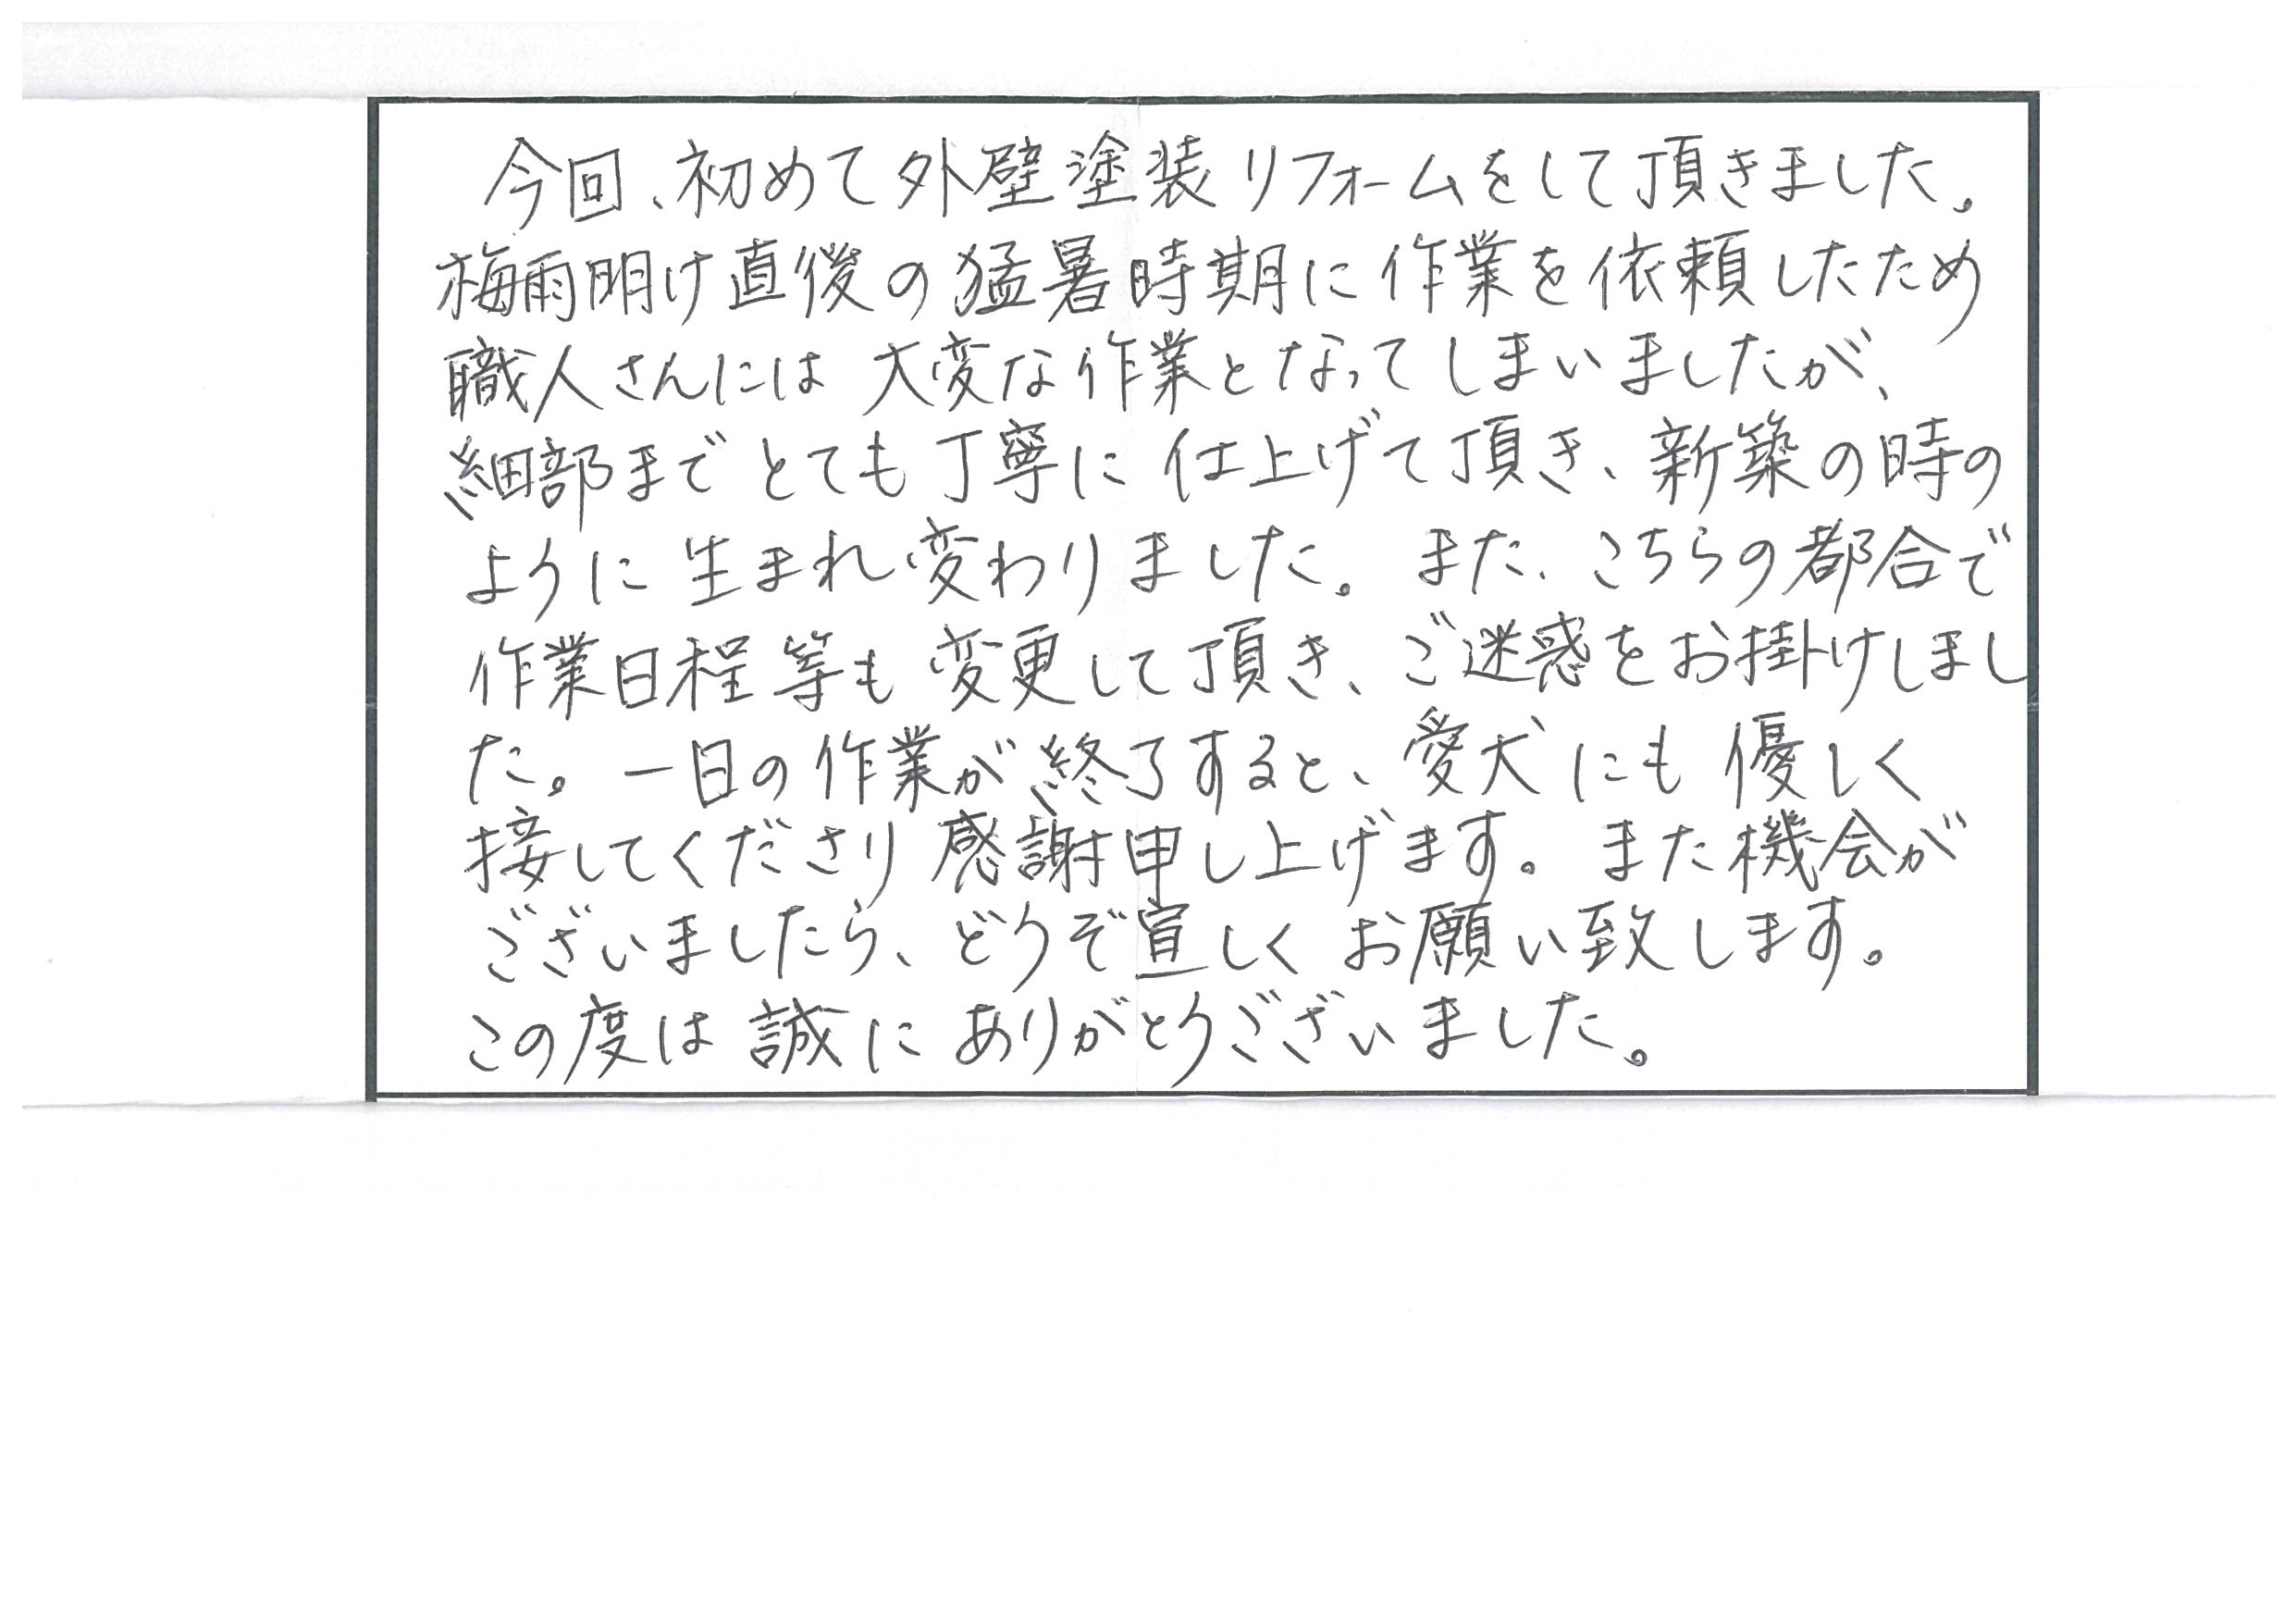 今回、初めて外壁塗装リフォームをして頂きました。
梅雨明け直後の猛暑時期に作業を依頼したため
職人さんには大変な作業となってしまいましたが、
細部までとても丁寧に仕上げて頂き、新築の時の
ように生まれ変わりました。また、こちらの都合で
作業日程等も変更して頂き、ご迷惑をお掛けしまし
た。一日の作業が終了すると、愛犬にも優しく
接してくださり感謝申し上げます。また機会が
ございましたら、どうぞ宜しくお願い致します。
この度は誠にありがとうございました。